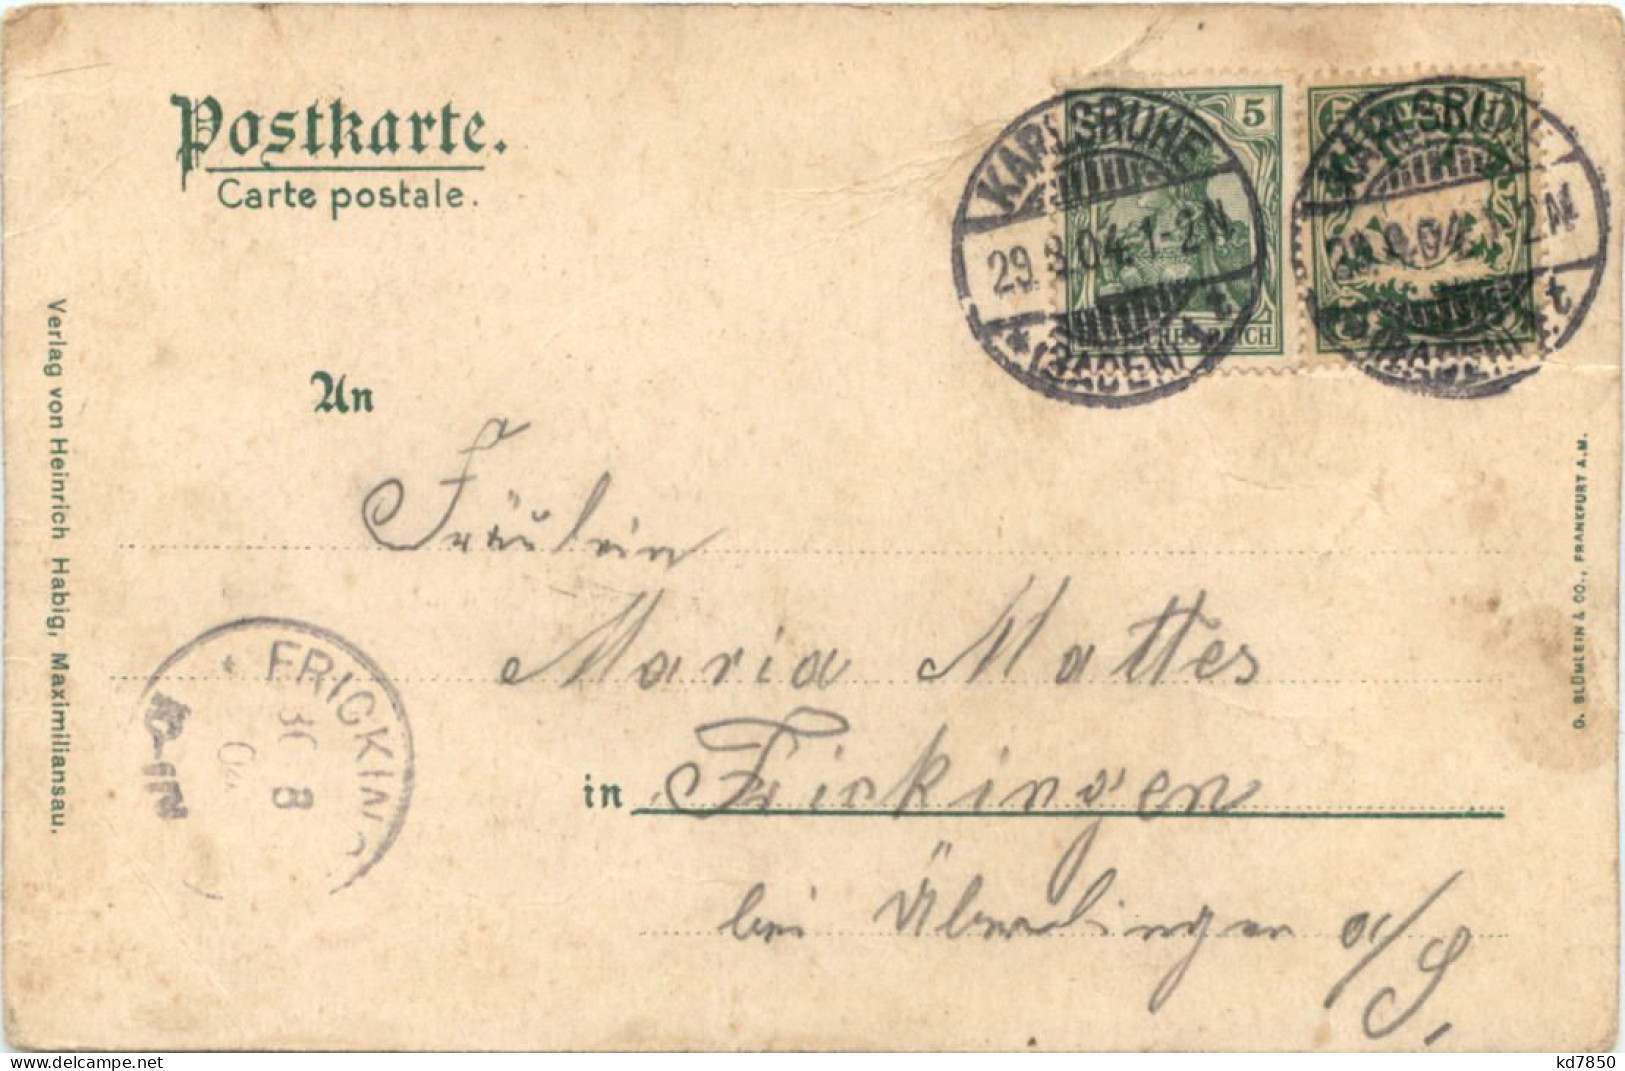 Postkarte.
Carte postale.
KARLSRUHE
29.8.04.1-2N.
* (BADEN) 1 t
5
DEUTSCHES REICH
KARLSRUHE
29.8.04.1-2N
(BADEN) t
An
Fräulein
Maria Mattes
in Frickingen
bei Überlingen a/S.
FRICKING
30 8
04
Verlag von Heinrich Habig, Maximiliansau.
G. BLÜMLEIN & CO., FRANKFURT A.M.
https://www.delcampe.net
kd7850